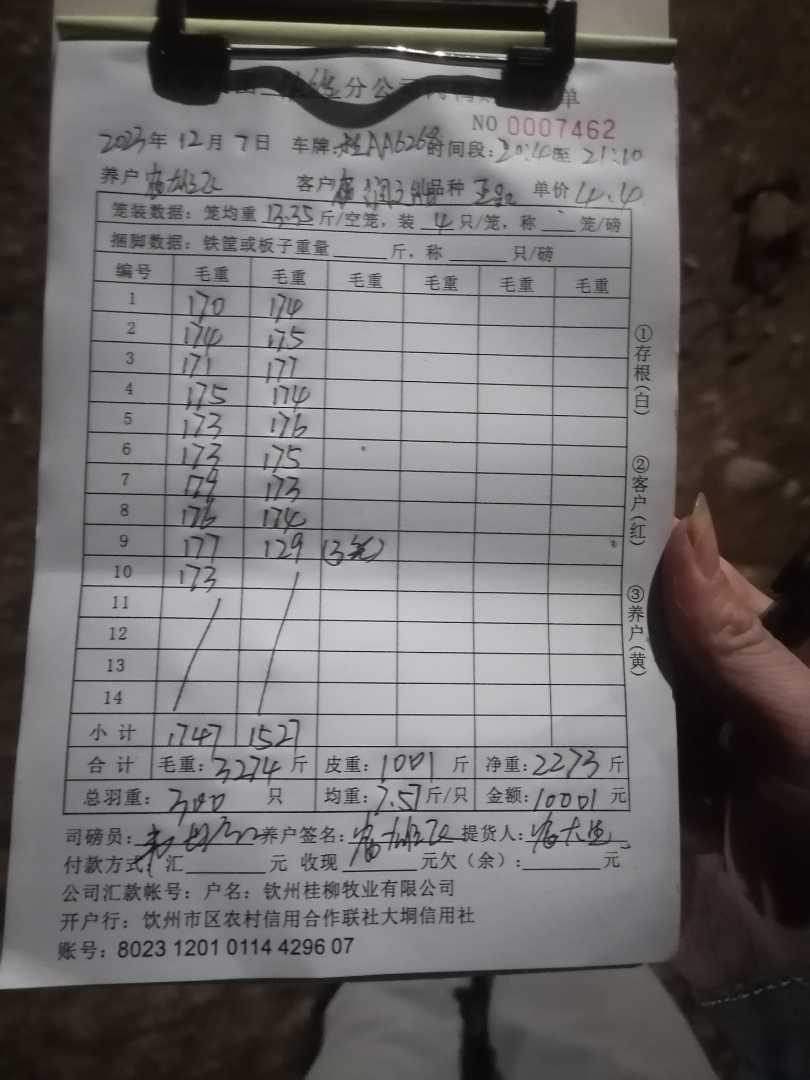 分公司 单
NO 0007462
2023年 12月 7日 车牌: AA626 时间段: 20:40至 21:10
养户 客户 品种 单价 4.4
笼装数据: 笼均重 13.35 斤/空笼, 装 4 只/笼, 称 笼/磅
捆脚数据: 铁筐或板子重量 斤, 称 只/磅
编号 毛重 毛重 毛重 毛重 毛重 毛重
1 170 174
2 174 175
3 171 177
4 175 174
5 173 176
6 173 175
7 173
8 176 174
9 177 129 (3笼)
10 173
11
12
13
14
小计 1747 1527
合计 毛重: 3274 斤 皮重: 1001 斤 净重: 2273 斤
总羽重: 300 只 均重: 7.57 斤/只 金额: 10001 元
司磅员: 养户签名: 提货人:
付款方式: 汇 元 收现 元欠(余): 元
公司汇款帐号: 户名: 钦州桂柳牧业有限公司
开户行: 钦州市区农村信用合作联社大垌信用社
账号: 8023 1201 0114 4296 07
①存根(白)
②客户(红)
③养户(黄)